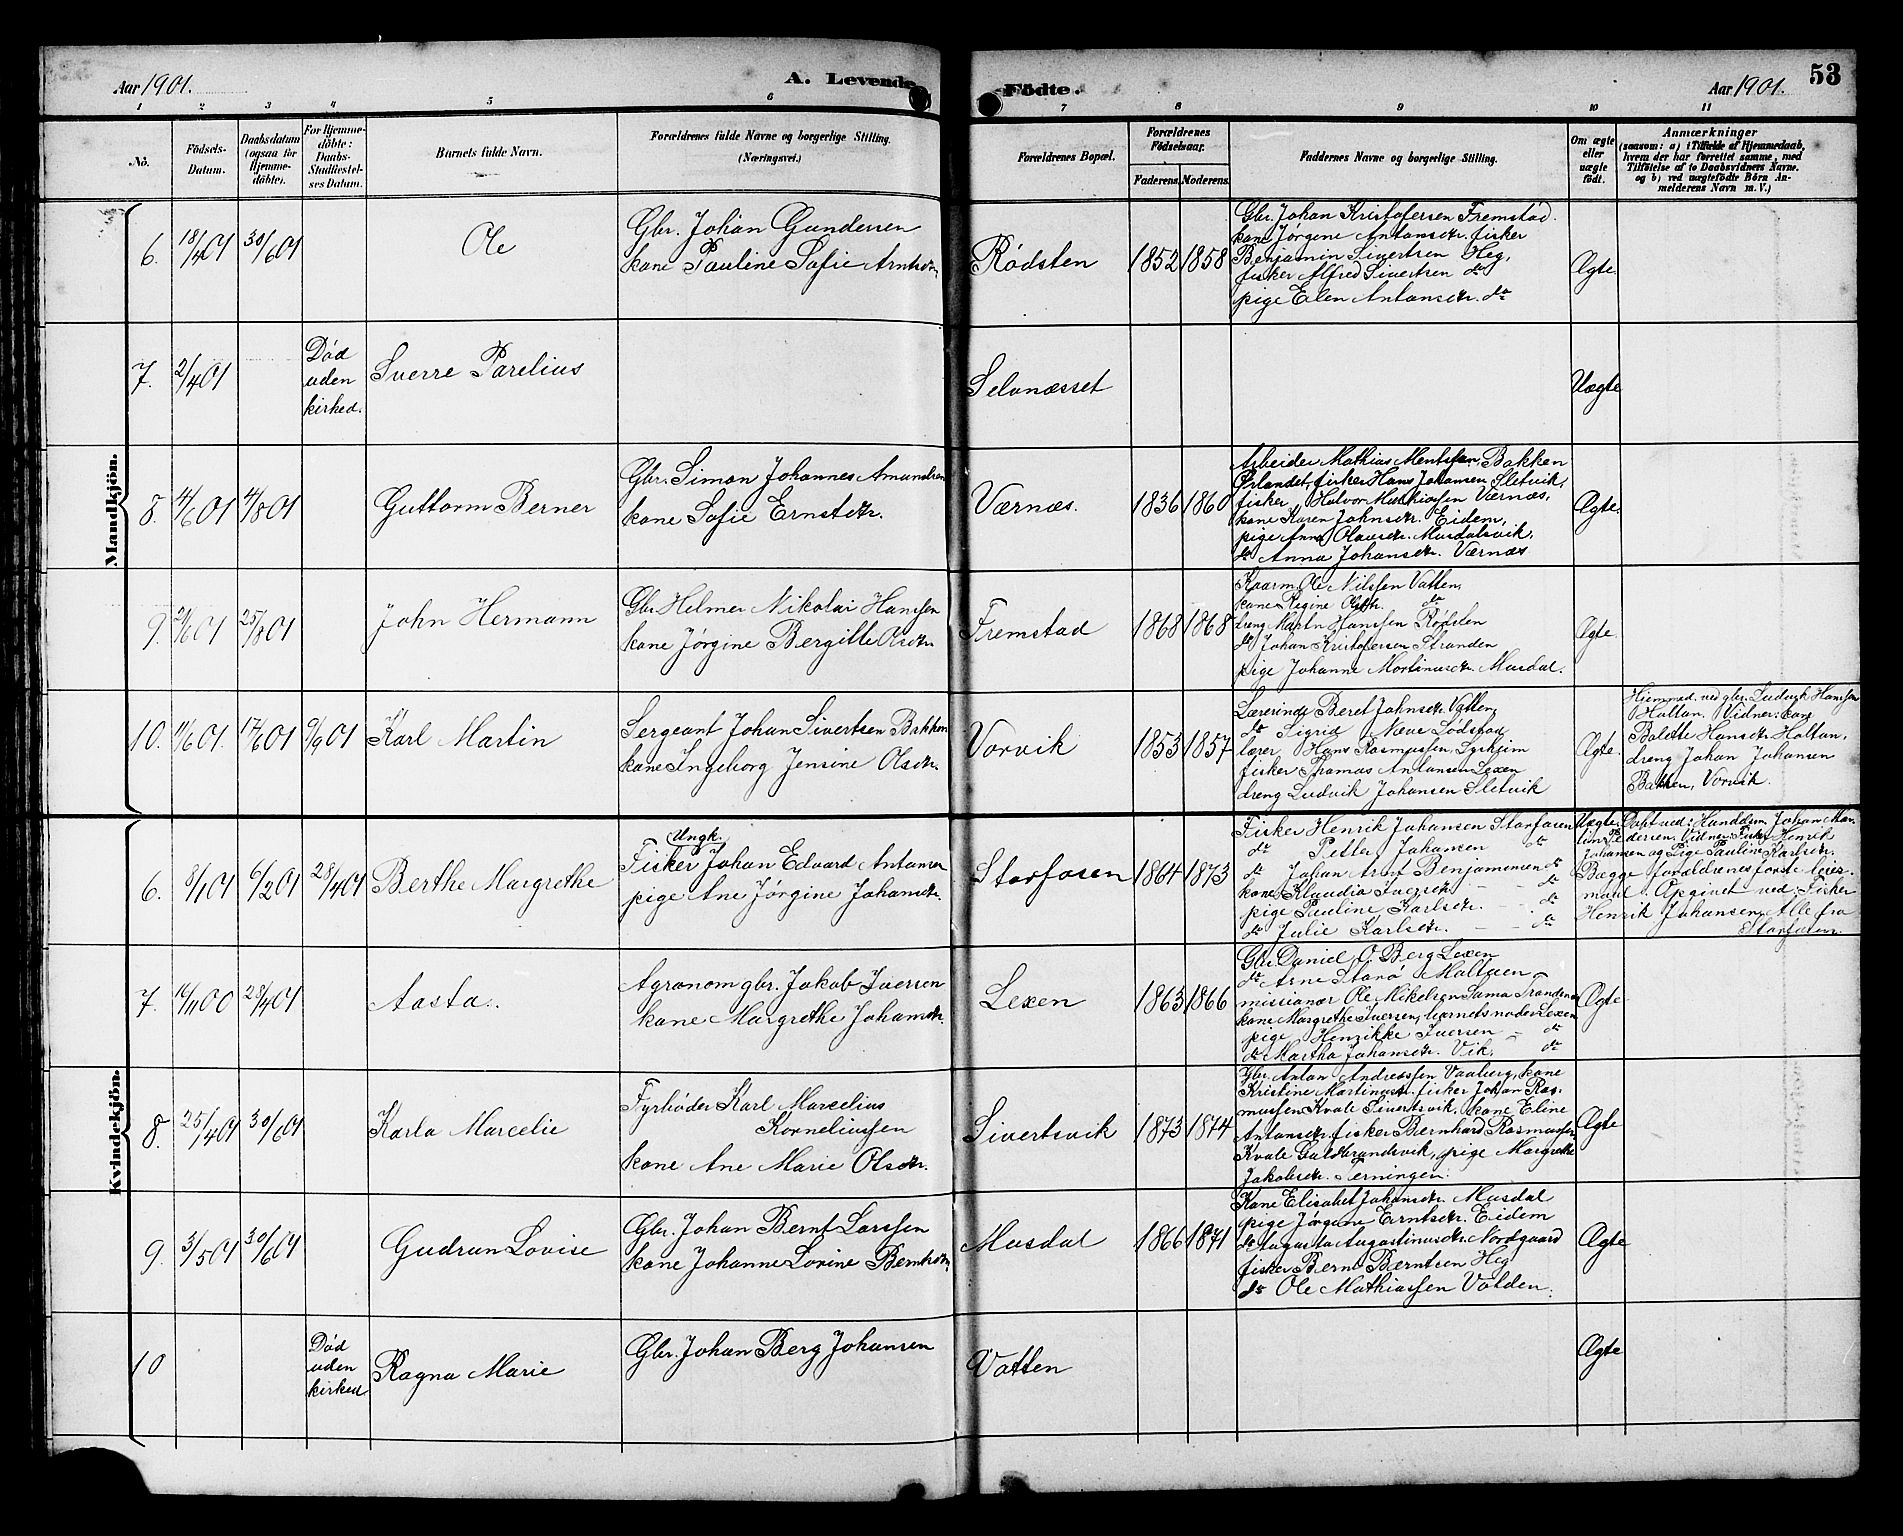 Aar 1901.
A. Levende
Födte.
Aar 1901.
53
1 2 3 4 5 6 7 8 9 10 11
No.
Födsels-
Datum.
Daabsdatum
(ogsaa for
Hjemme-
döbte).
For Hjemme-
döbte:
Daabs-
Stadfæstel-
ses Datum.
Barnets fulde Navn.
Forældrenes fulde Navne og borgerlige Stilling.
(Næringsvei.)
Forældrenes Bopæl.
Forældrenes
Födselsaar.
Faderens.
Moderens.
Faddernes Navne og borgerlige Stilling.
Om ægte
eller
uægte
født.
Anmærkninger
(saasom: a) i Tilfælde af Hjemmedaab,
hvem der har forrettet samme, med
Tilföielse af to Daabsvidners Navne.
og b) ved uægtefødte Börn An-
melderens Navn m. V.)
Mandkjön.
6.
18/4 01
30/6 01
Ole
Gbr. Johan Gundersen
kone Pauline Sofie Arntsdtr.
Rødsten
1852
1858
Gbr. Johan Kristofersen Fremstad.
kone Jørgine Antonsdtr. fisker
Benjamin Sivertsen Heg,
fisker Alfred Sivertsen do
pige Elen Antonsdtr. do
Ægte
7.
2/4 01
Død
uden
kirked.
Sverre Parelius
Selvnæsset
Uægte
8.
4/6 01
4/8 01
Guttorm Berner
Gbr. Simon Johannes Amundsen
kone Sofie Ernstdtr.
Værnæs.
1836
1860
Arbeider Mathias Mentsen, Bakken
Ørlandet, fisker Hans Johansen Sletvik,
fisker Halvor Mathiassen Værnæs,
kone Karen Johnsdtr. Eidem,
pige Anna Olausdtr. Musdalsvik,
do Anna Johansdtr. Værnæs
Ægte.
9.
21/6 01
25/8 01
John Hermann
Gbr. Helmer Nikolai Hansen
kone Jørgine Bergitte Olsdtr.
Fremstad
1868
1868
Kaarm. Ole Nilssen Vatten,
kone Regine Olsdtr. do
dreng Martin Hanssen Rødsten
do Johan Kristofersen Stranden
pige Johanne Martinusdtr. Musdal.
Ægte
10.
11/6 01.
17/6 01
9/9 01
Karl Martin
Sergeant Johan Sivertsen Bakken
kone Ingeborg Jensine Olsdtr.
Vorvik
1853
1857
Lærerinde Beret Johnsdtr. Vatten,
do Sigrid Næve Lødstad
lærer Hans Rasmussen, Lysheim
fisker Thomas Antonsen Lexen
dreng Ludvik Johansen Sletvik
Ægte.
Hjemmed. ved gbr. Ludvik Hansen
Holtan. Vidner: kone
Balette Hansdtr. Holtan,
dreng Johan Johansen
Bakken, Vorvik.
Kvindekjön.
6.
8/1 01
6/2 01
28/4 01
Berthe Margrethe
Ungk.
Fisker Johan Edvard Antonsen
pige Ane Jørgine Johansdtr.
Storfosen
1864
1873
Fisker Henrik Johansen Storfosen
do Petter Johansen do
do Johan Arnt Benjaminsen do
kone Klaudia Iversdtr. do
pige Pauline Karlsdtr. do
do Julie Karlsdtr. do
Uægte
Døpt ved: Handelsm. Johan Mar-
tin Pedersen. Vidner: Fisker Henrik
Johansen og Pige Pauline Karlsdtr.
Begge forældrenes første leies-
maal. Opgivet ved: Fisker
Henrik Johansen. Alle fra
Storfosen.
7.
16/11 00
28/4 01
Aasta.
Agronom gbr. Jakob Iversen
kone Margrethe Johansdtr.
Lexen
1863
1866
Gbr. Daniel O. Berg Lexen
do Arne Storø Moltuen
missionær Ole Mikelsen Sama Tranden
kone Margrethe Iversen, barnets moder Lexen
pige Henrikke Iversen do
do Martha Johansdtr. Vik, do
Ægte
8.
25/4 01
30/6 01
Karla Marcelie
Fyrbøder Karl Marcelius
Korneliussen
kone Ane Marie Olsdtr.
Sivertsvik
1873
1874
Gbr. Anton Andreassen Vaaberg, kone
Kristine Martinusdtr. fisker Johan Ras-
mussen Kvale Sivertsvik, kone Eline
Antonsdtr. fisker Bernhard Rasmussen
Kvale Guldbrandsvik, pige Margrethe
Jakobsdtr. Terningen.
Ægte
9.
3/5 01
30/6 01
Gudrun Lovise
Gbr. Johan Bernt Larssen
kone Johanne Lovine Berntsdtr.
Musdal
1866
1871
Kone Elisabet Johansdtr. Musdal
pige Jørgine Erntsdtr. Eidem
do Augusta Augustinusdtr. Nordgaard
fisker Bernt Berntsen Heg
do Ole Mathiassen Volden.
Ægte
10
Død
uden
kirked
Ragna Marie
Gbr. Johan Berg Johansen
Vatten
Ægte